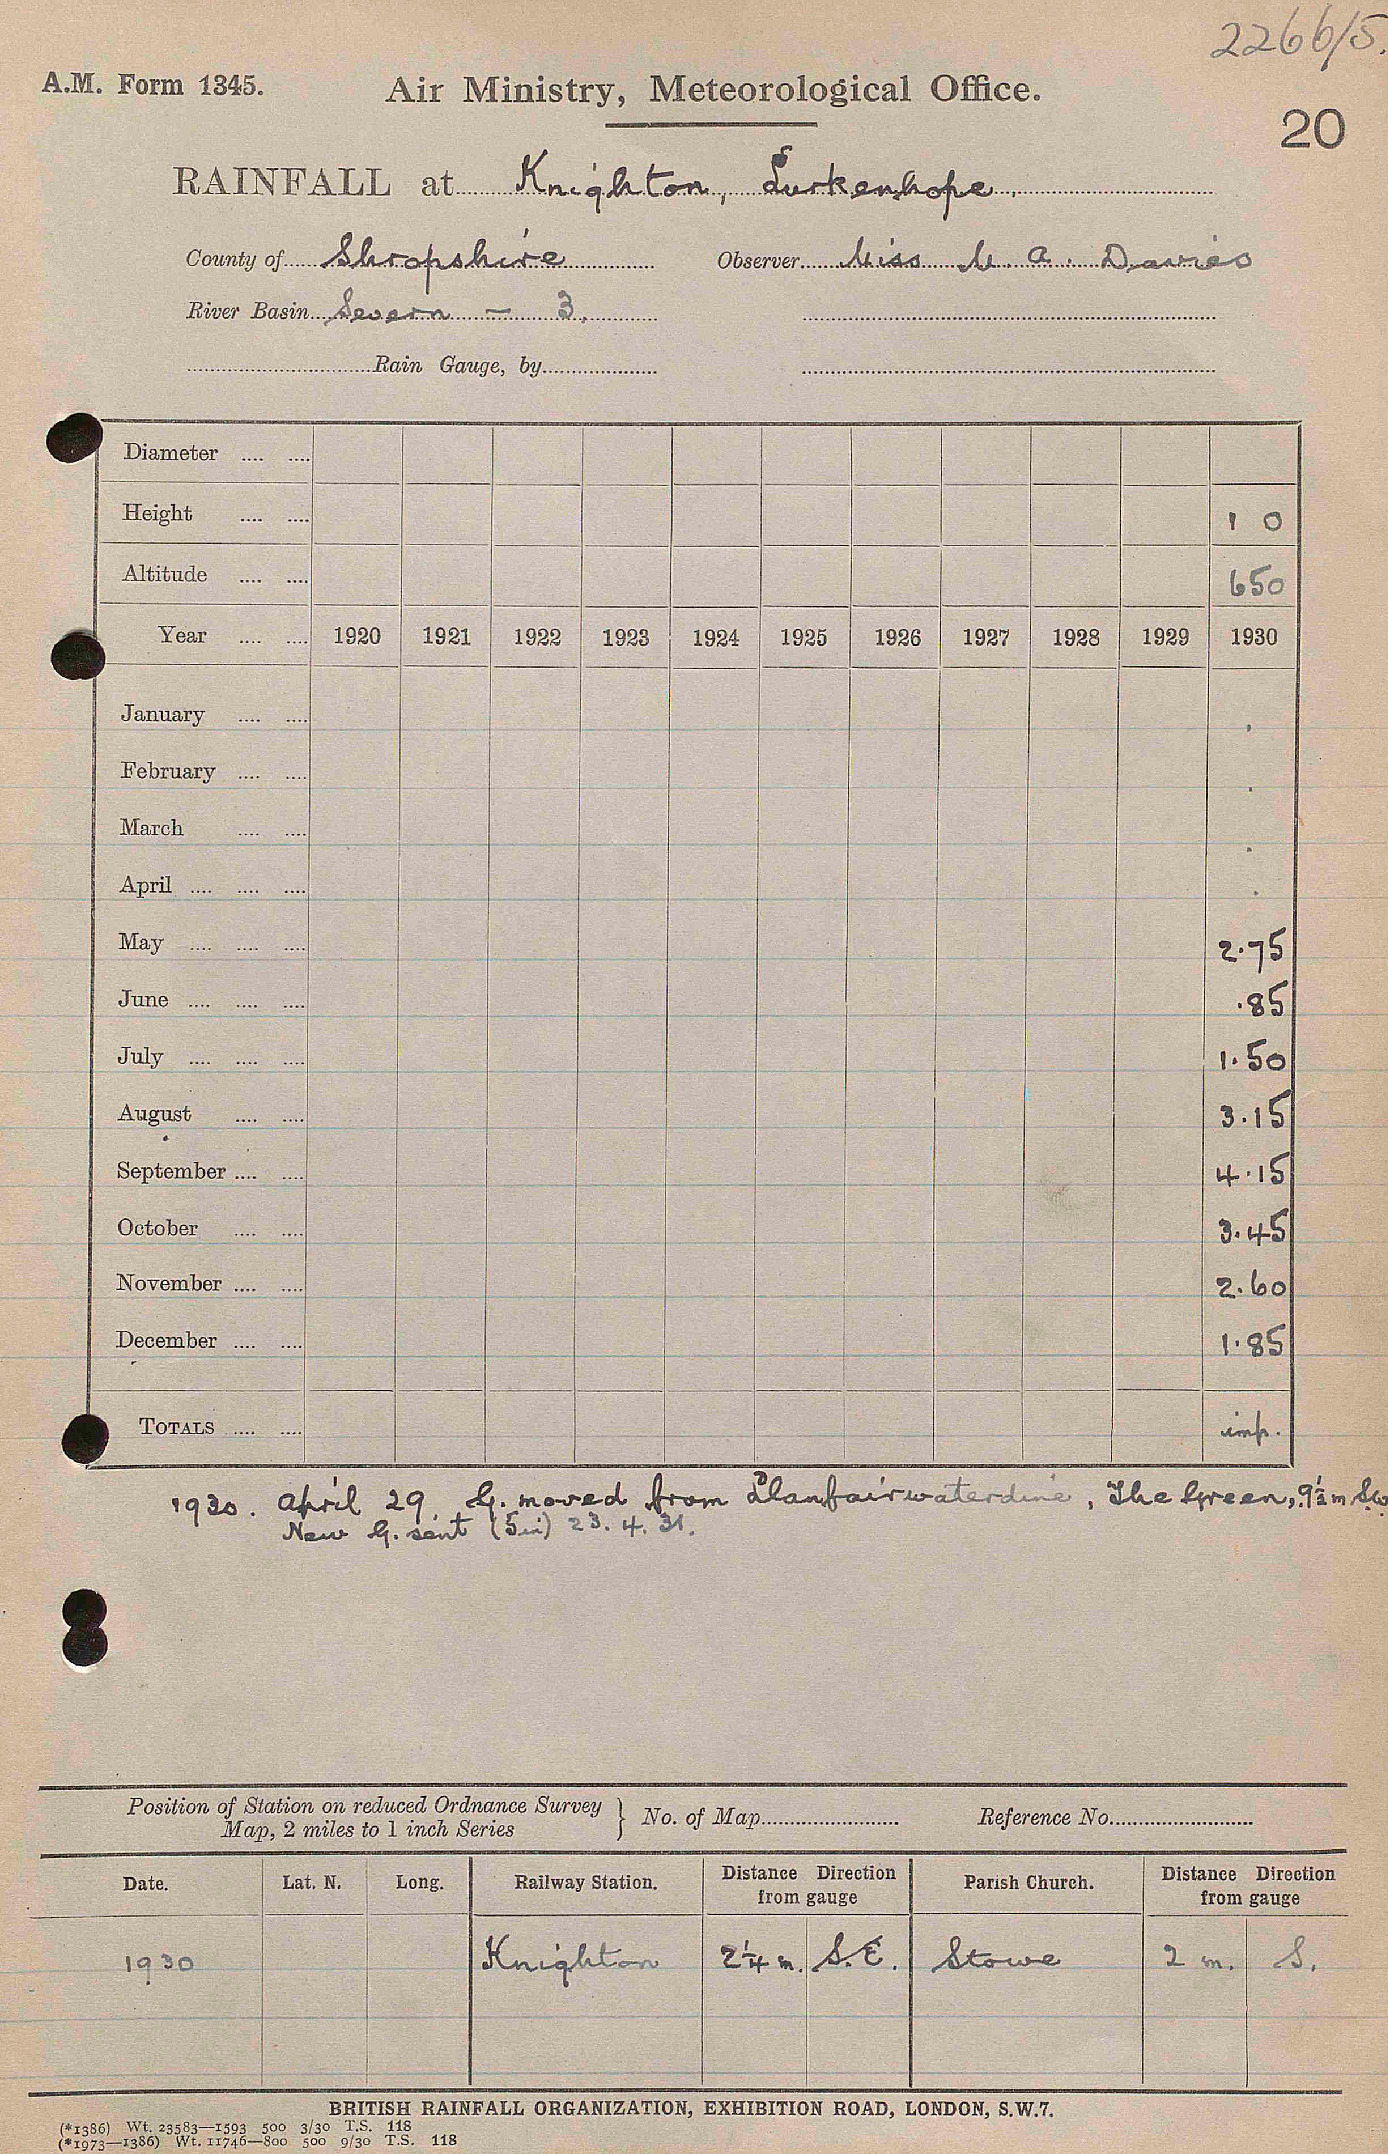 2266/5.
A.M. Form 1345. Air Ministry, Meteorological Office.
20
RAINFALL at Knighton, Lurkenhope.
County of Shropshire Observer Miss M. A. Davies
River Basin Severn - 3.
Rain Gauge, by
Diameter .... ....
Height .... .... 1 0
Altitude .... .... 650
Year .... .... 1920 1921 1922 1923 1924 1925 1926 1927 1928 1929 1930
January .... .... .
February .... .... .
March .... .... .
April .... .... .... .
May .... .... .... 2.75
June .... .... .... .85
July .... .... .... 1.50
August .... .... 3.15
September .... .... 4.15
October .... .... 3.45
November .... .... 2.60
December .... .... 1.85
TOTALS .... .... imp.
1930. April 29 G. moved from Llanfairwaterdine, The Green, 9½ m SW.
New G. sent (5in) 23. 4. 31.
Position of Station on reduced Ordnance Survey
Map, 2 miles to 1 inch Series } No. of Map Reference No.
Date. Lat. N. Long. Railway Station. Distance Direction from gauge Parish Church. Distance Direction from gauge
1930 Knighton 2¼ m. S.E. Stowe 2 m. S.
BRITISH RAINFALL ORGANIZATION, EXHIBITION ROAD, LONDON, S.W.7.
(*1386) Wt. 23583—1593 500 3/30 T.S. 118
(*1973—1386) Wt. 11746—800 500 9/30 T.S. 118